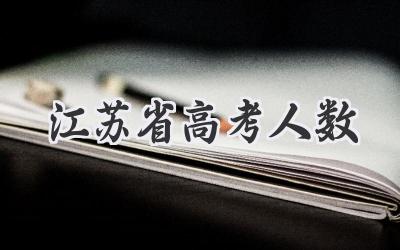 江苏省高考人数